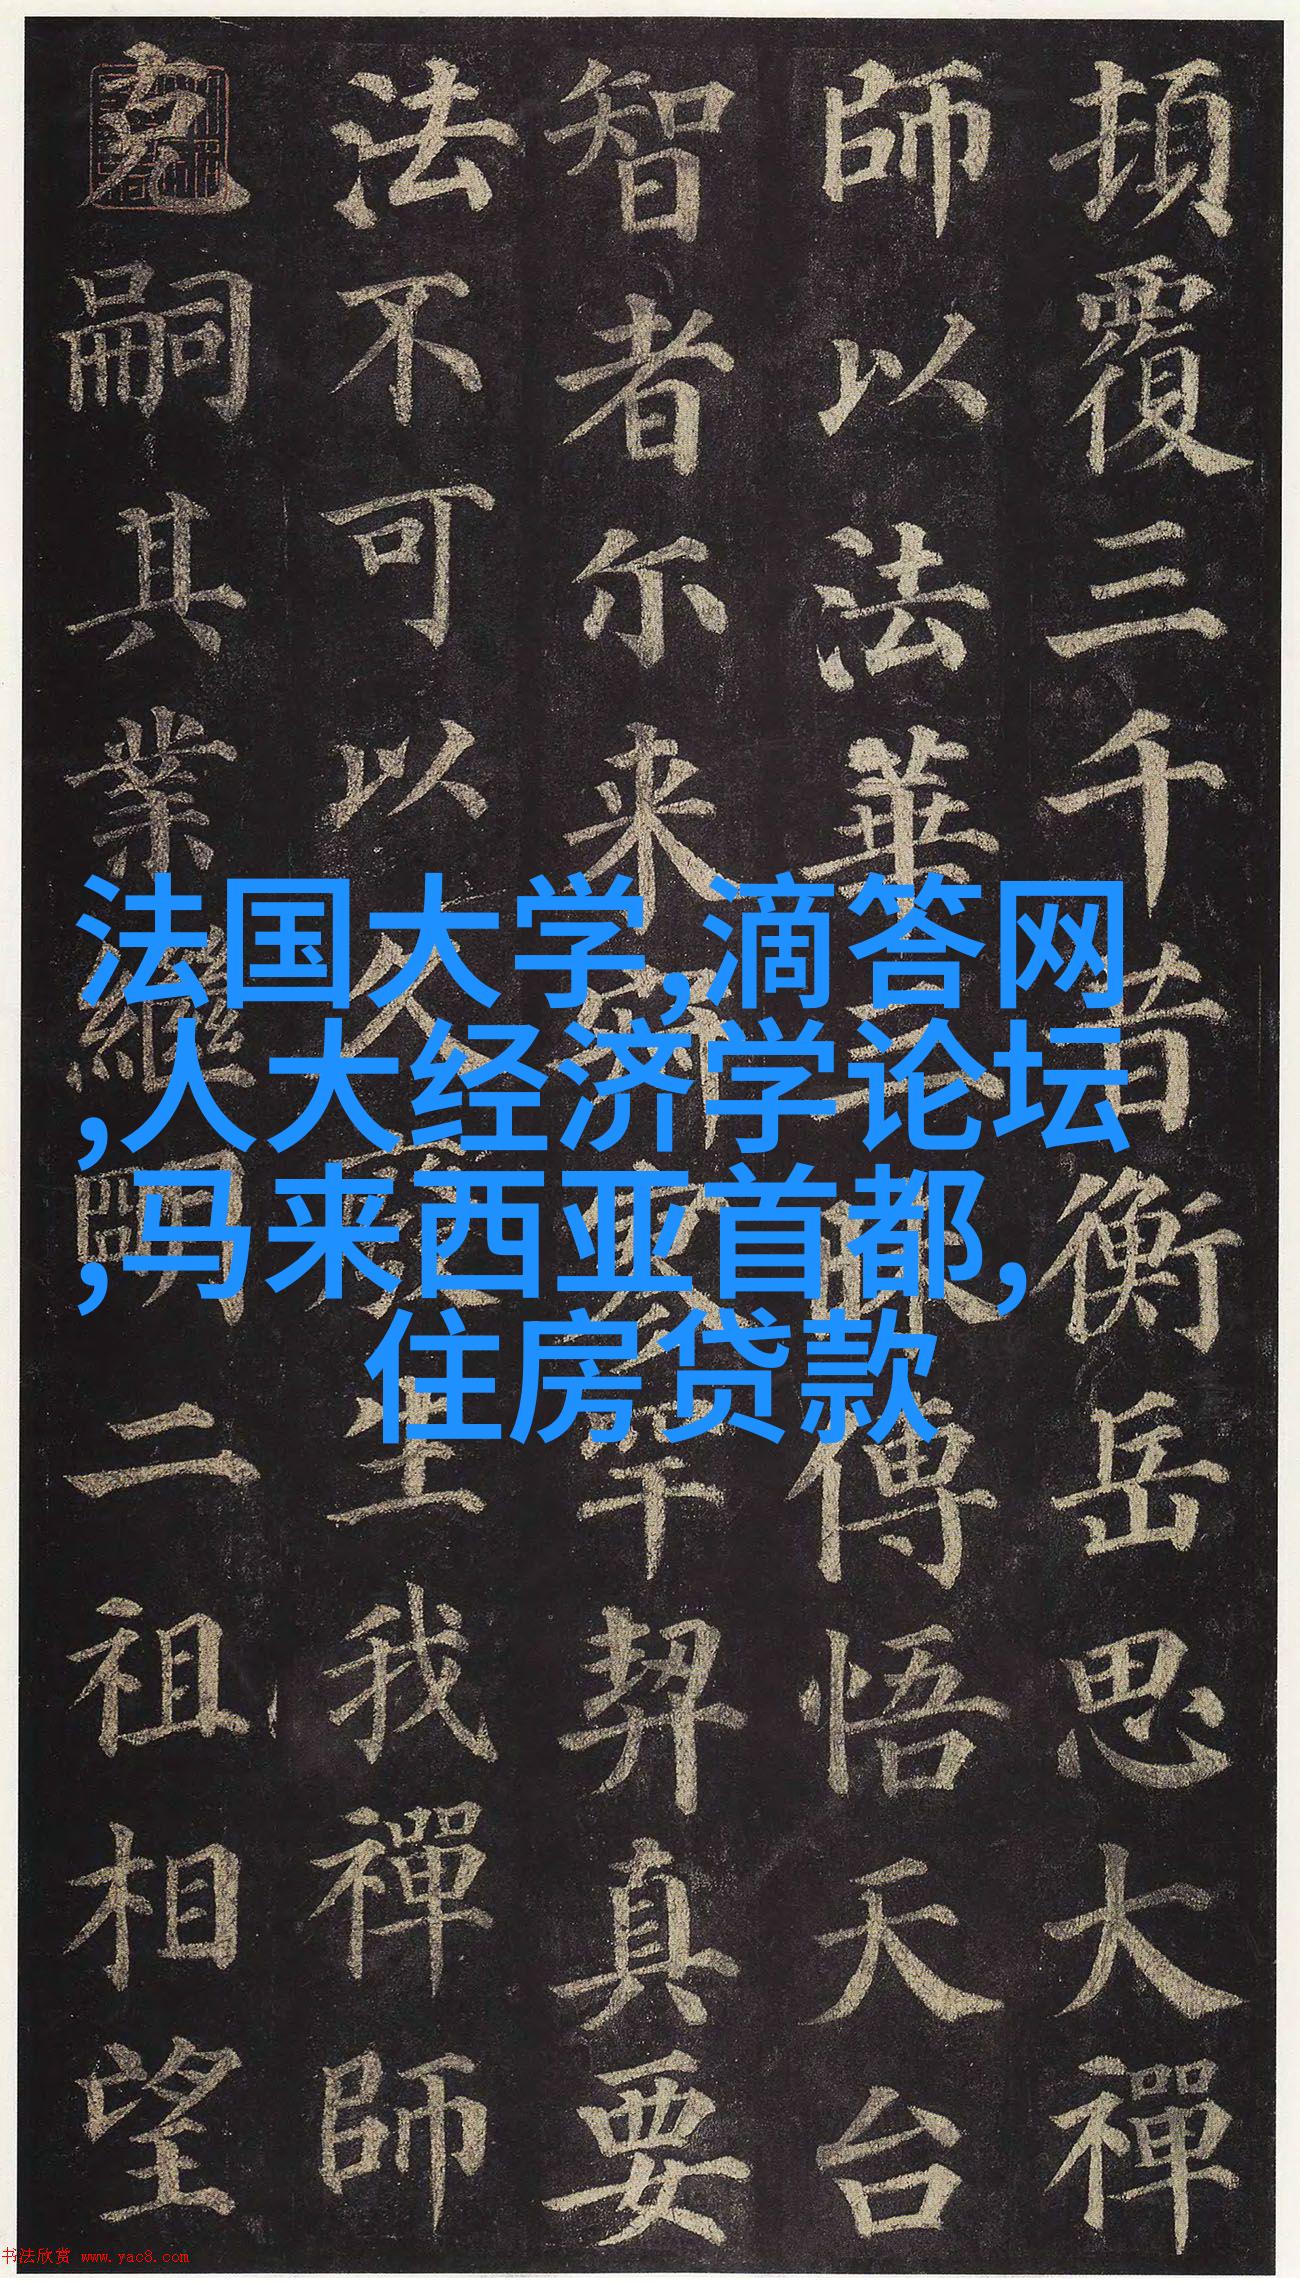 頂覆三千昔衡岳思大禪
師以法華三昧傳悟天台
智者尓来寂寥罕契真要
法不可以久廢生我禪師
克嗣其業繼明二祖相望
法国大学,滴答网
,人大经济学论坛
,马来西亚首都,
住房贷款
书法欣赏 www.yac8.com